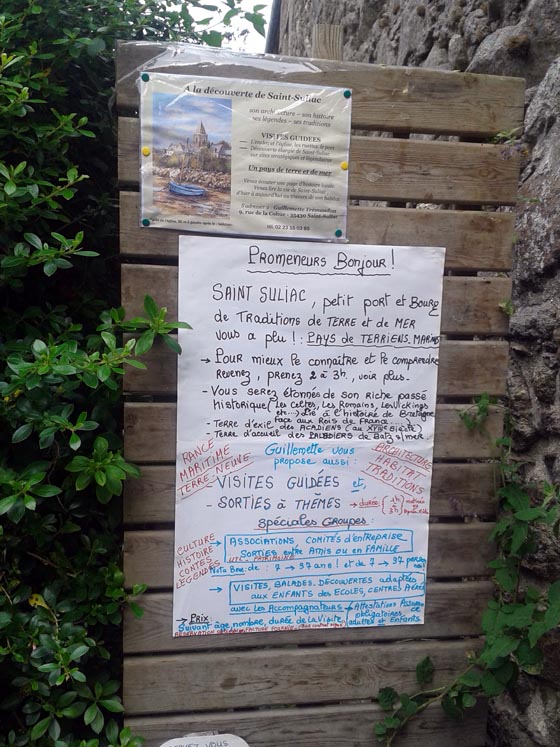 A la découverte de Saint-Suliac
son architecture – son histoire
ses légendes – ses traditions
VISITES GUIDEES
L'enclos et l'église, les ruelles, le port
Découverte élargie de Saint-Suliac
sur sites stratégiques et légendaires
Un pays de terre et de mer
S'adresser à : Guillemette
9, rue de la Coëtie - 35430 Saint-Suliac
Tél. 02 23 15 03 85
PROMENEURS BONJOUR !
SAINT SULIAC, petit port et Bourg
de TRADITIONS de TERRE et de MER
vous a plu ! : PAYS de TERRIENS, MARINS
→ Pour mieux le connaître et le comprendre
Revenez, prenez 2 à 3h., voir plus.
- Vous serez étonnés de son riche passé
Historique (les Celtes, Les Romains, Les Vickings
etc...) Lié à l'histoire de Bretagne
face aux Rois de France
- TERRE d'exil des ACADIENS (au XVIIIe siècle)
- TERRE d'accueil des PALUDIERS de Batz s/mer
RANCE
MARITIME
TERRE NEUVE
Guillemette vous
propose aussi :
ARCHITECTURE
HABITAT
TRADITIONS
- VISITES GUIDÉES et,
- SORTIES à THÈMES → durée (2h
3h)
Spéciales Groupes :
CULTURE
HISTOIRE
CONTES
LÉGENDES
→ ASSOCIATIONS, COMITÉS d'entreprise
SORTIES entre AMIS ou en FAMILLE
UTL - PATRIMOINE
Nota Bne. de : 7 → 97 ans ! et de 7 → 37 pers
→ VISITES, BALADES, DÉCOUVERTES adaptées
aux ENFANTS des ECOLES, CENTRES AÉRÉS
avec les Accompagnateurs → Attestations Assurance
obligatoires
adultes et Enfants
→ PRIX
Suivant âge, nombre, durée de la Visite